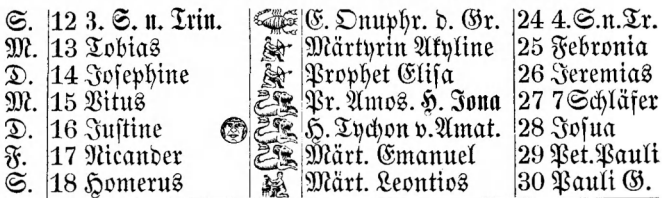 S. 12 3. S. n. Trin. E. Onuphr. d. Gr. 24 4.S.n.Tr.
M. 13 Tobias Märtyrin Akyline 25 Febronia
D. 14 Josephine Prophet Elisa 26 Jeremias
M. 15 Vitus Pr. Amos. H. Jona 27 7 Schläfer
D. 16 Justine H. Tychon v. Amat. 28 Josua
F. 17 Nicander Märt. Emanuel 29 Pet. Pauli
S. 18 Homerus Märt. Leontios 30 Pauli G.